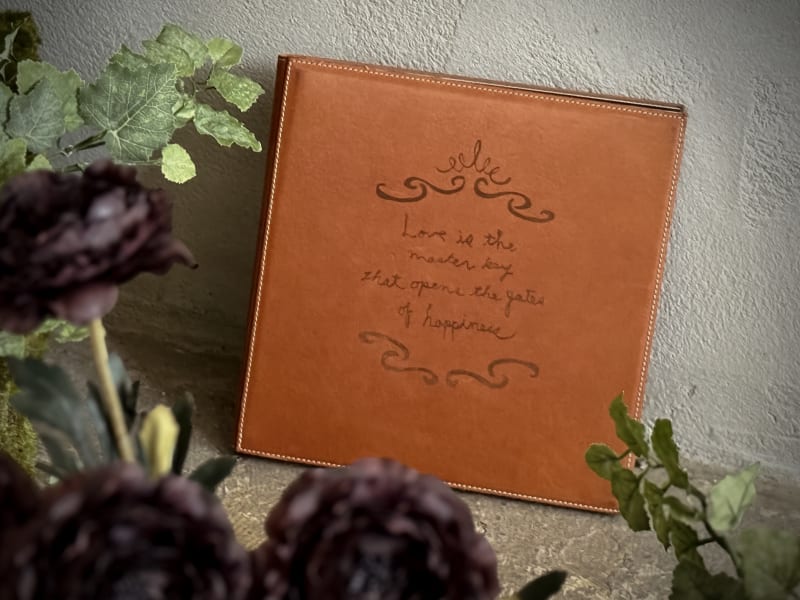 Love is the
master key
that opens the gates
of happiness